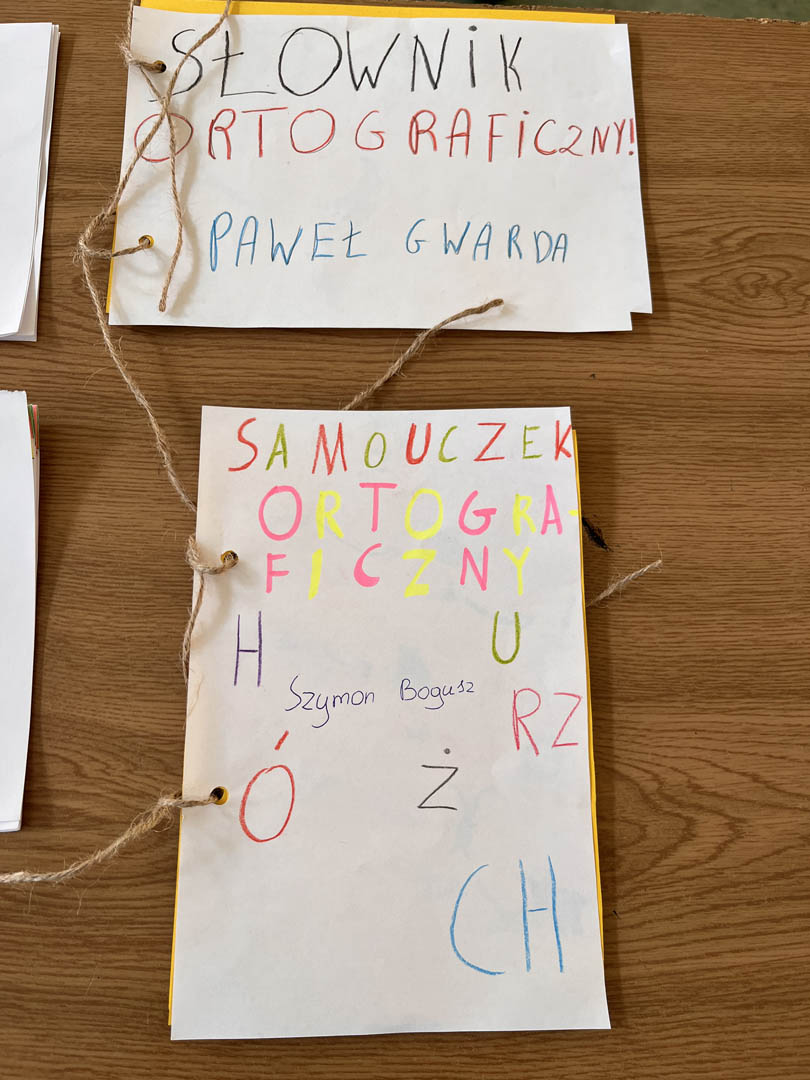 SŁOWNIK
ORTOGRAFICZNY!
PAWEŁ GWARDA
SAMOUCZEK
ORTOGRA-
FICZNY
H U
Szymon Bogusz
RZ
Ó Ż
CH